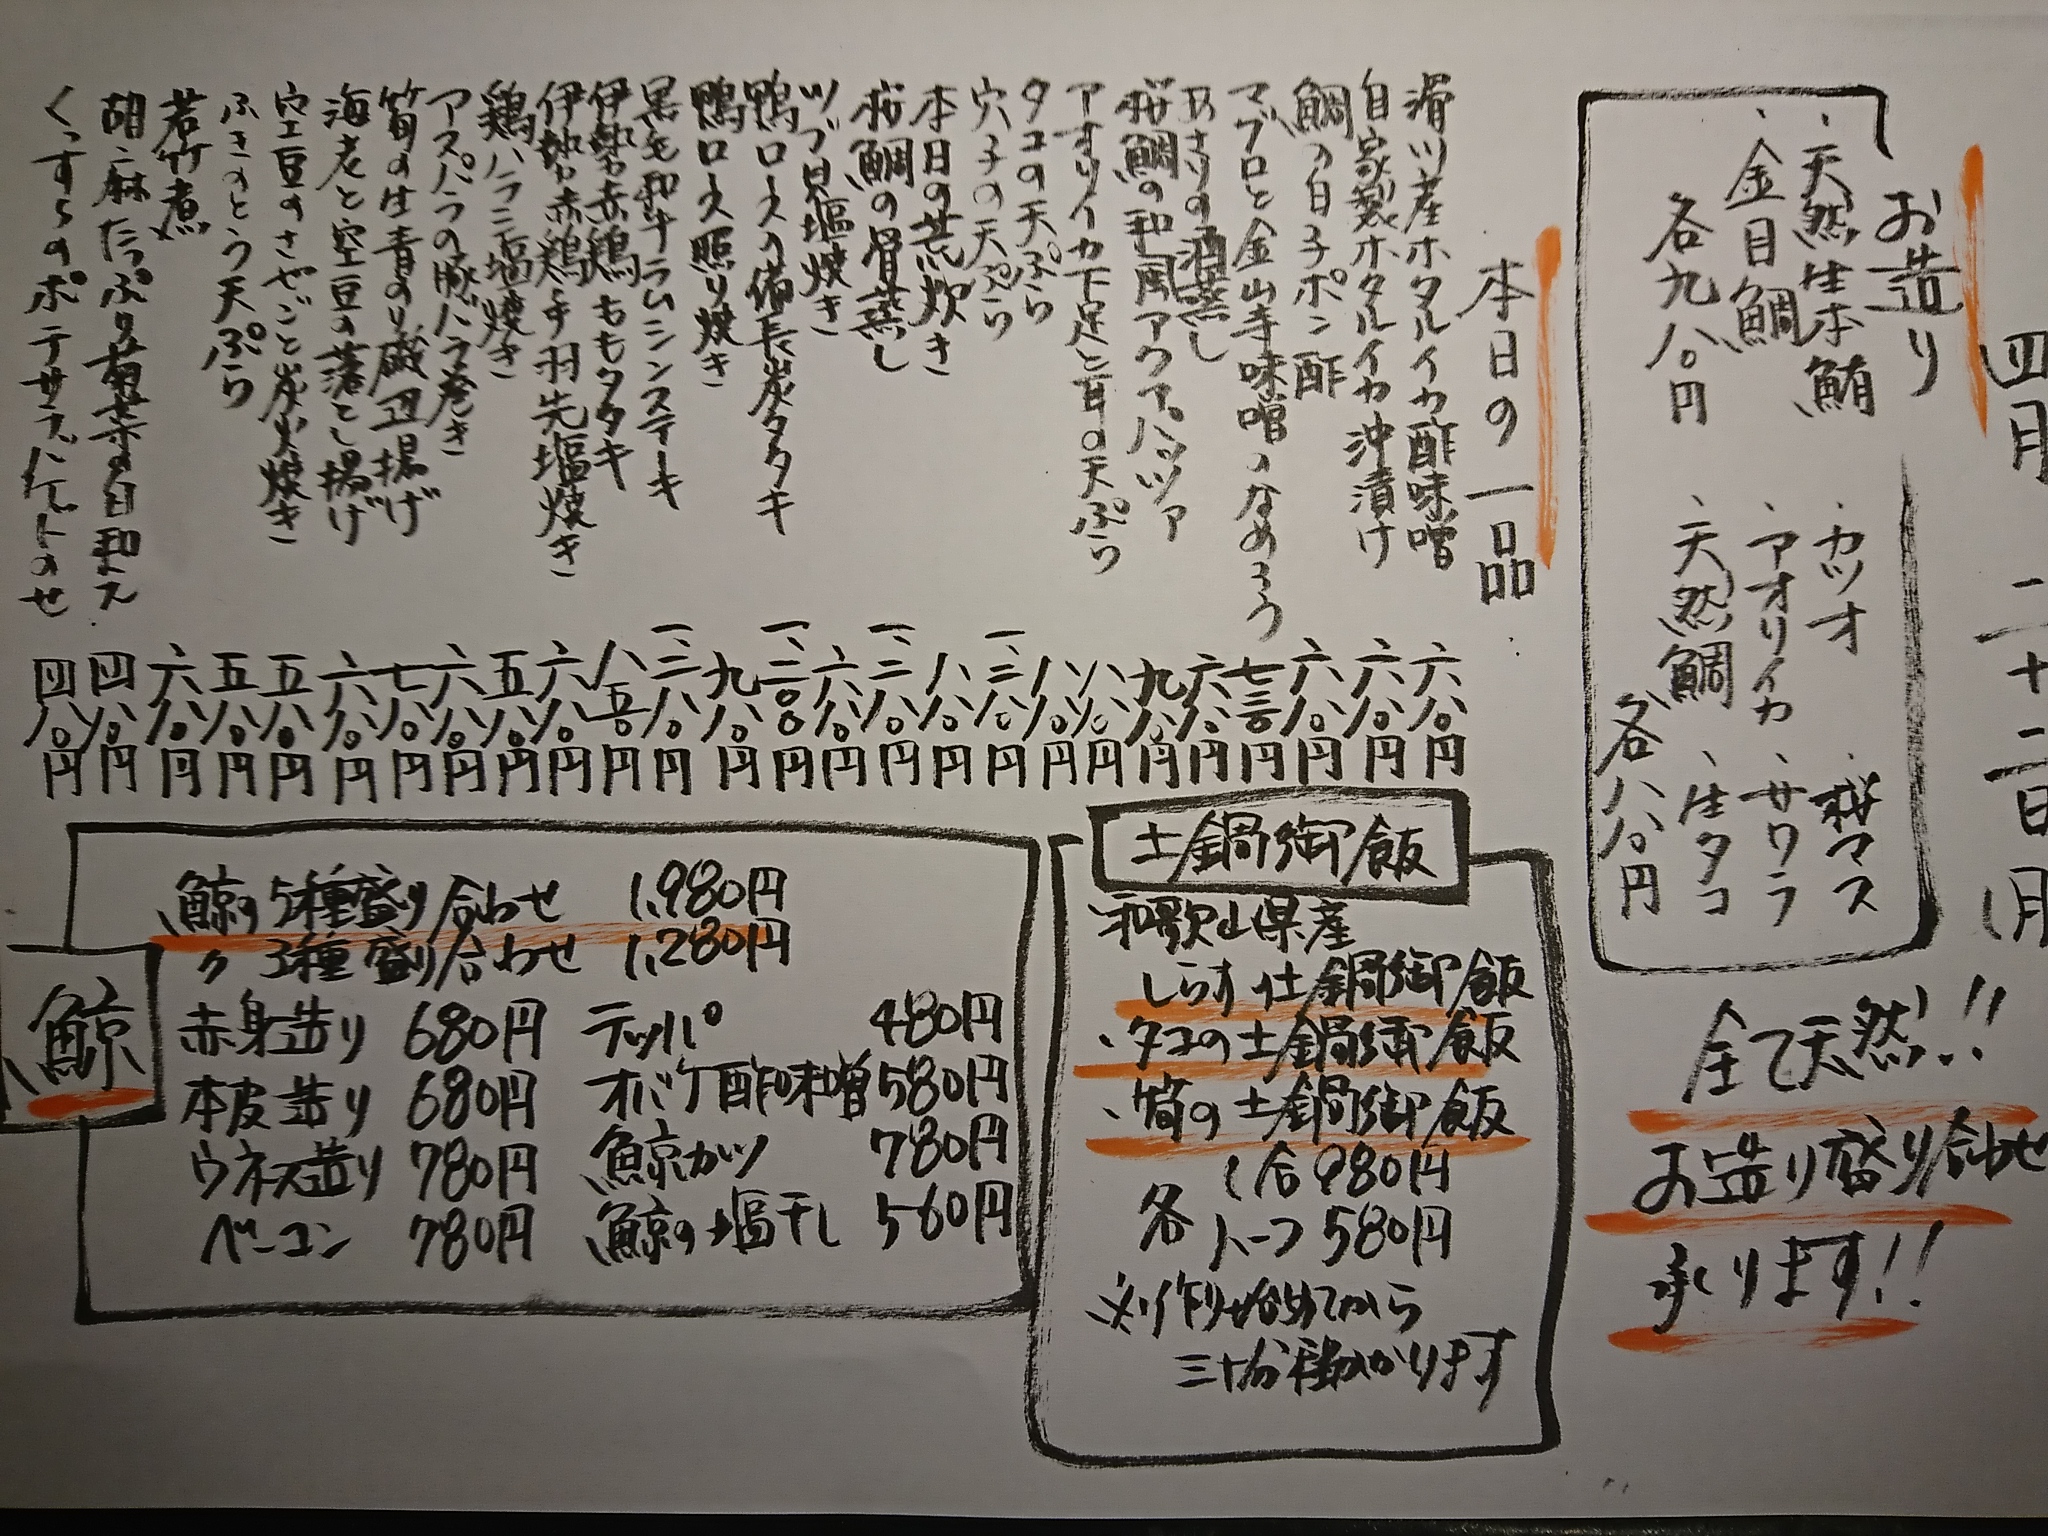 四月二十二日(月
お造り
・天然生本鮪
・金目鯛
各九八〇円
・カツオ
・桜マス
・アオリイカ
・サワラ
・天然鯛
・生タコ
各八八〇円
全て天然!!
お造り盛り合わせ
承ります!!
本日の一品
滑川産ホタルイカ酢味噌 六八〇円
自家製ホタルイカ沖漬け 六八〇円
鯛の白子ポン酢 六八〇円
マグロと金山寺味噌のなめろう 七三〇円
あさりの酒蒸し 六八〇円
桜鯛の和風アクアパッツァ 九八〇円
アオリイカ下足と耳の天ぷら 八八〇円
タコの天ぷら 八八〇円
穴子の天ぷら
本日の荒炊き 八八〇円
桜鯛の骨蒸し
ツブ貝塩焼き 六八〇円
鴨ロースの備長炭タタキ 一、二〇〇円
鴨ロース照り焼き 九八〇円
黒毛和牛ラムシンステーキ 一、三八〇円
伊勢赤鶏ももタタキ 八五〇円
伊勢赤鶏手羽先塩焼き 六八〇円
鶏ハラミ塩焼き 五八〇円
アスパラの豚バラ巻き 六八〇円
筍の生青のり磯辺揚げ 七八〇円
海老と空豆の落とし揚げ 六八〇円
空豆のさやごと炭火焼き 五八〇円
ふきのとう天ぷら 五八〇円
若竹煮 六八〇円
胡麻たっぷり菊菜の白和え 四八〇円
くっすらのポテサラバケットのせ 四八〇円
土鍋御飯
和歌山県産
しらす土鍋御飯
・タコの土鍋御飯
・筍の土鍋御飯
各 1合 980円
ハーフ 580円
※作り始めてから
三十分程かかります
鯨
鯨の5種盛り合わせ 1,980円
〃 3種盛り合わせ 1,280円
赤身造り 680円 テッパ 480円
本皮造り 680円 オバケ酢味噌 580円
ウネス造り 780円 鯨カツ 780円
ベーコン 780円 鯨の塩干し 560円